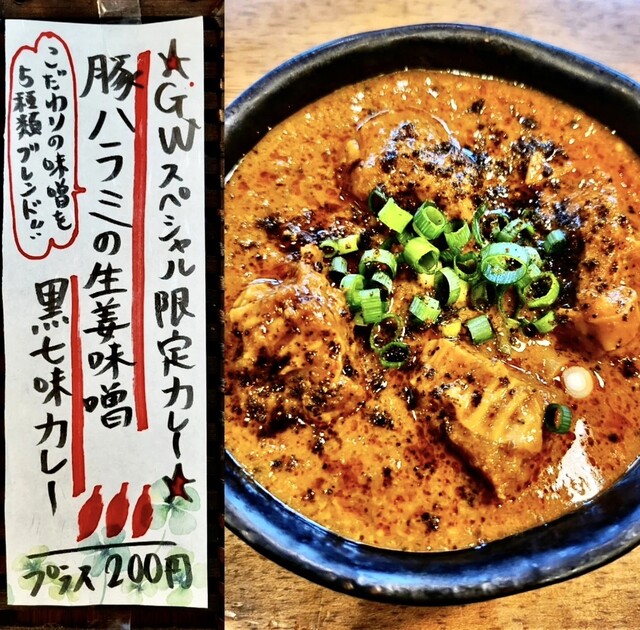 ★GWスペシャル限定カレー★
豚ハラミの生姜味噌
黒七味カレー
こだわりの味噌を
5種類ブレンド!!
プラス200円